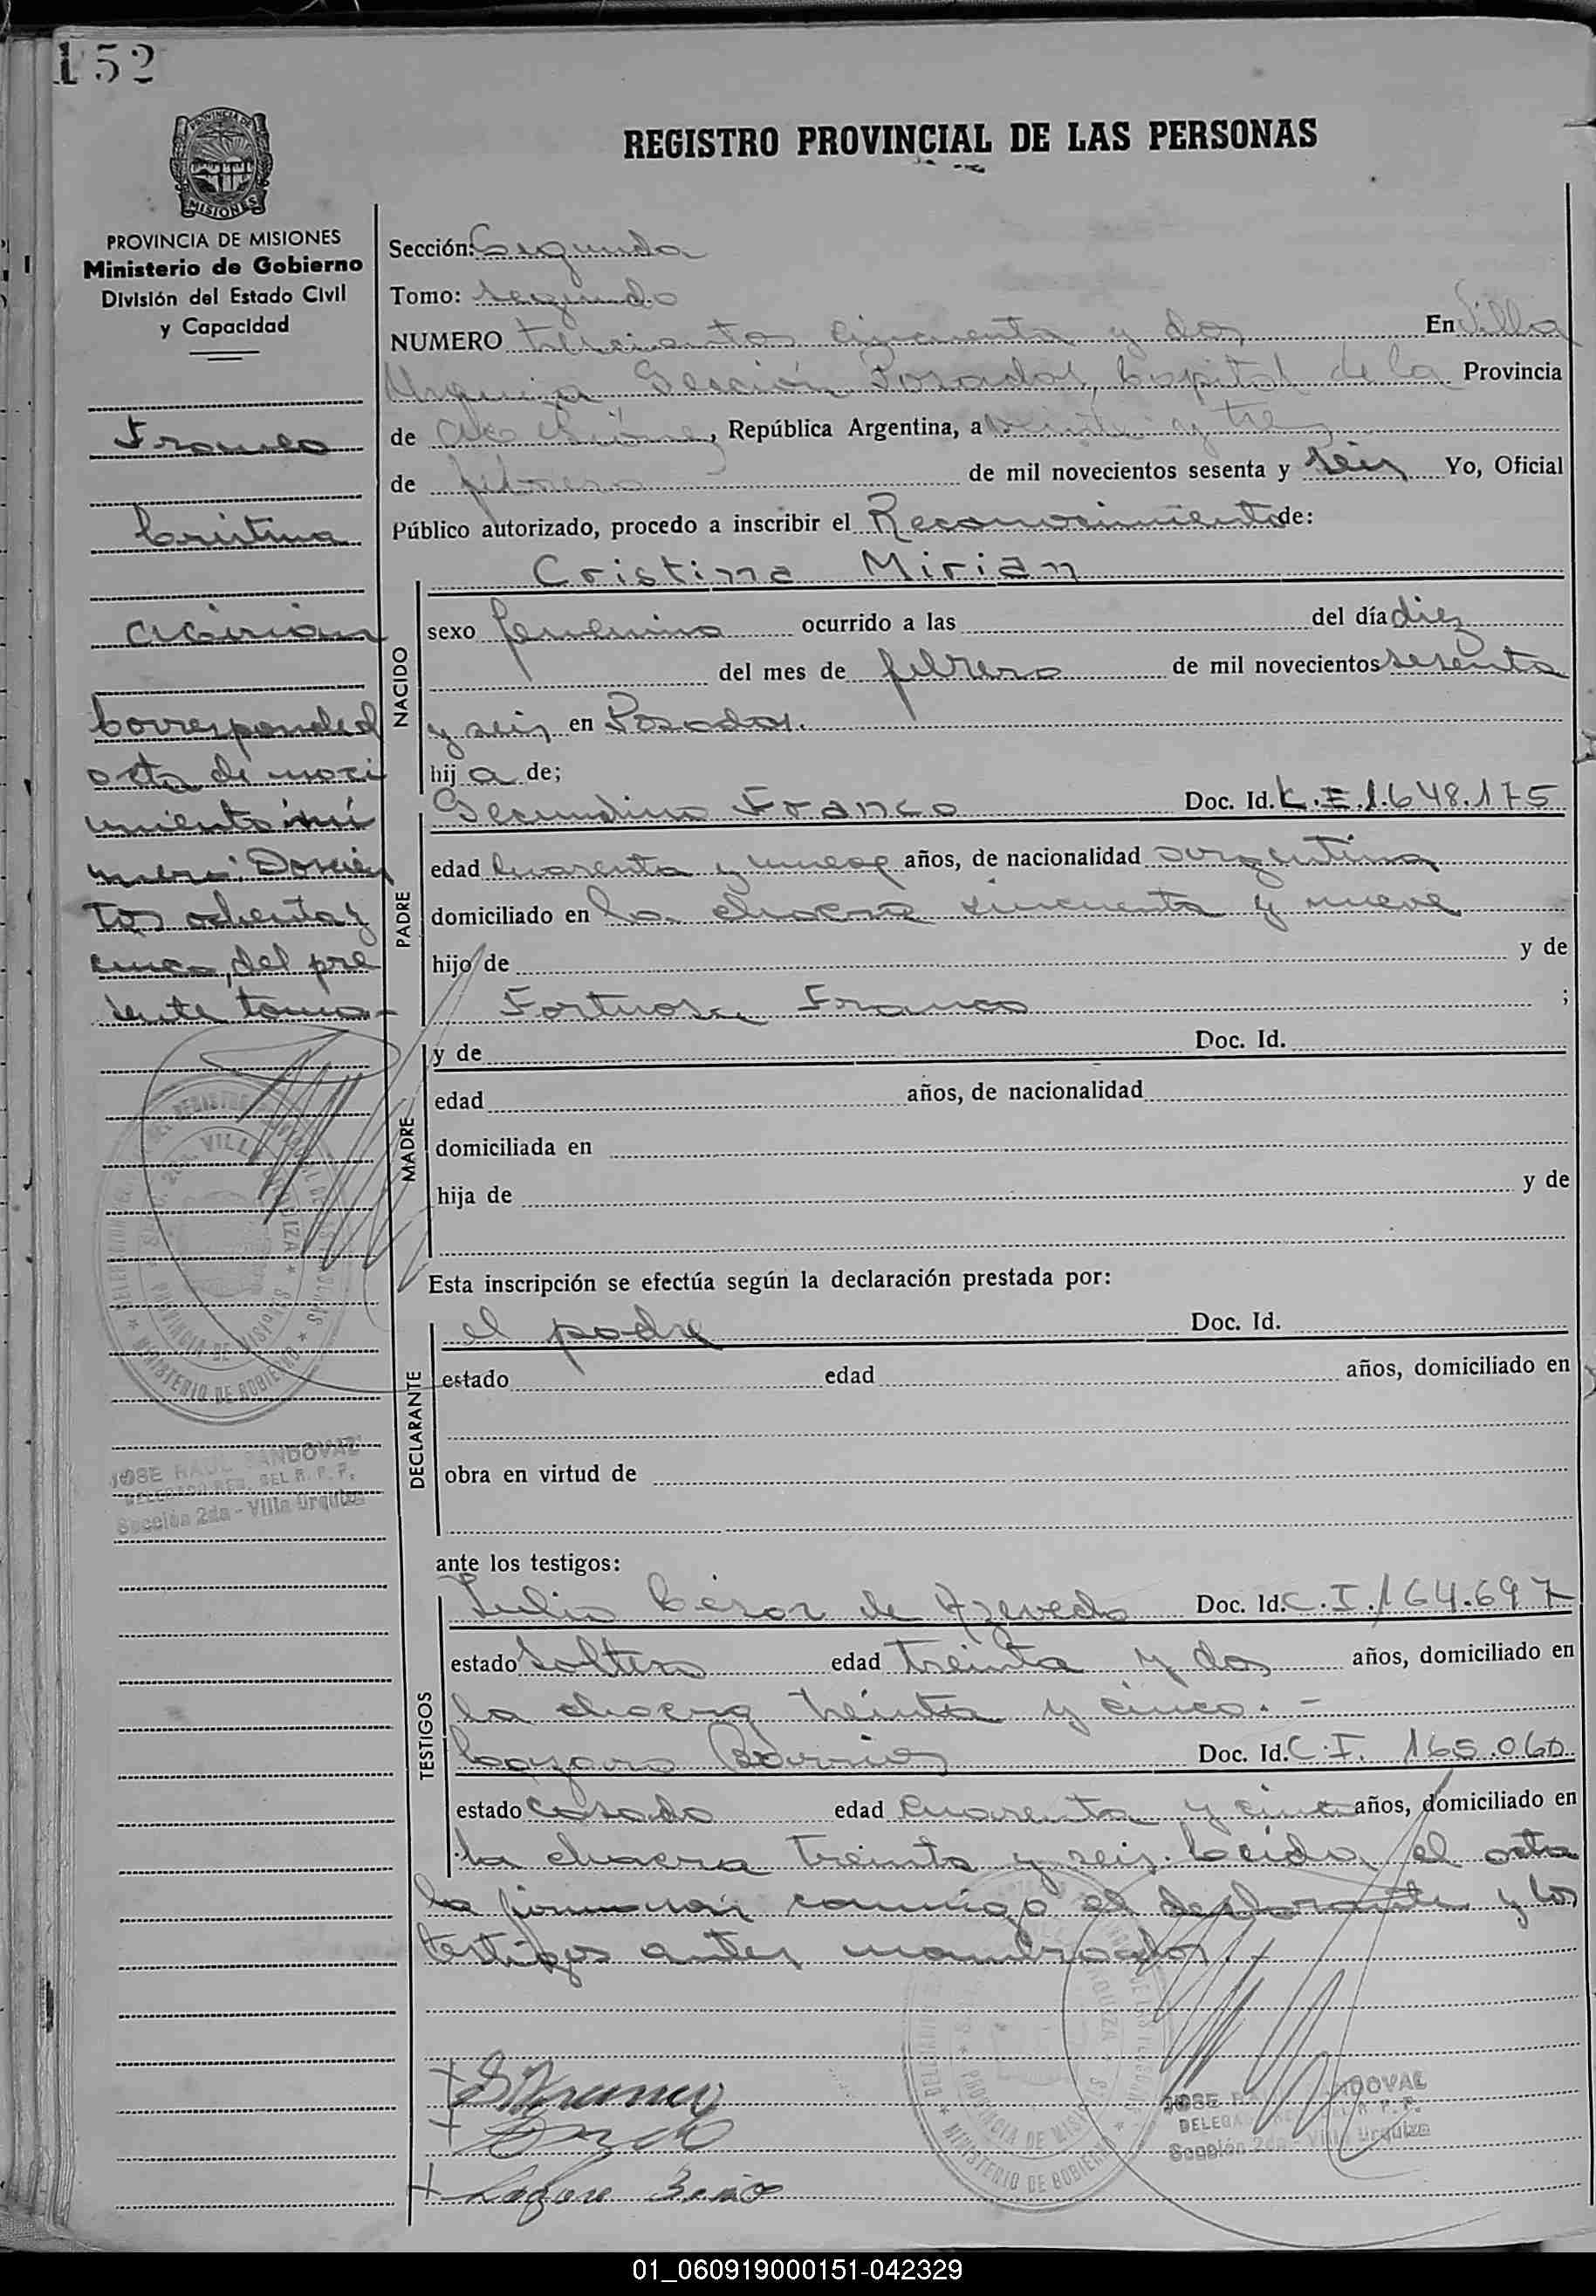 152
PROVINCIA DE MISIONES
REGISTRO PROVINCIAL DE LAS PERSONAS
PROVINCIA DE MISIONES
Ministerio de Gobierno
División del Estado Civil
y Capacidad
Franco
Cristina
Mirian
Corresponde al
acta de naci
miento nú
mero: Doscien
tos ochenta y
cinco, del pre
sente tomo-
JOSE RAUL SANDOVAL
DELEGADO REG. DEL R. P. P.
Sección 2da - Villa Urquiza
Sección: Segunda
Tomo: segundo
NUMERO trescientos cincuenta y dos En Villa
Urquiza Sección Posadas, Capital de la Provincia
de Misiones, República Argentina, a veinte y tres
de febrero de mil novecientos sesenta y seis Yo, Oficial
Público autorizado, procedo a inscribir el Reconocimiento de:
Cristina Mirian
NACIDO
sexo femenino ocurrido a las del día diez
del mes de febrero de mil novecientos sesenta
y seis en Posadas.
hij a de;
PADRE
Secundino Franco Doc. Id. L.E.1.648.175
edad cuarenta y nueve años, de nacionalidad argentina
domiciliado en la chacra cincuenta y nueve
hijo de y de
Fortuosa Franco ;
MADRE
y de Doc. Id.
edad años, de nacionalidad
domiciliada en
hija de y de
Esta inscripción se efectúa según la declaración prestada por:
DECLARANTE
el padre Doc. Id.
estado edad años, domiciliado en
obra en virtud de
ante los testigos:
TESTIGOS
Julio César de Azevedo Doc. Id. C.I.164.697
estado soltero edad treinta y dos años, domiciliado en
la chacra treinta y cinco.-
Lazaro Barrios Doc. Id. C.I. 165.060
estado casado edad cuarenta y cinco años, domiciliado en
la chacra treinta y seis. Leída el acta
la firman conmigo el declarante y los
testigos antes nombrados.-
JOSE RAUL SANDOVAL
DELEGADO REG. DEL R. P. P.
Sección 2da - Villa Urquiza
S Franco
01_060919000151-042329